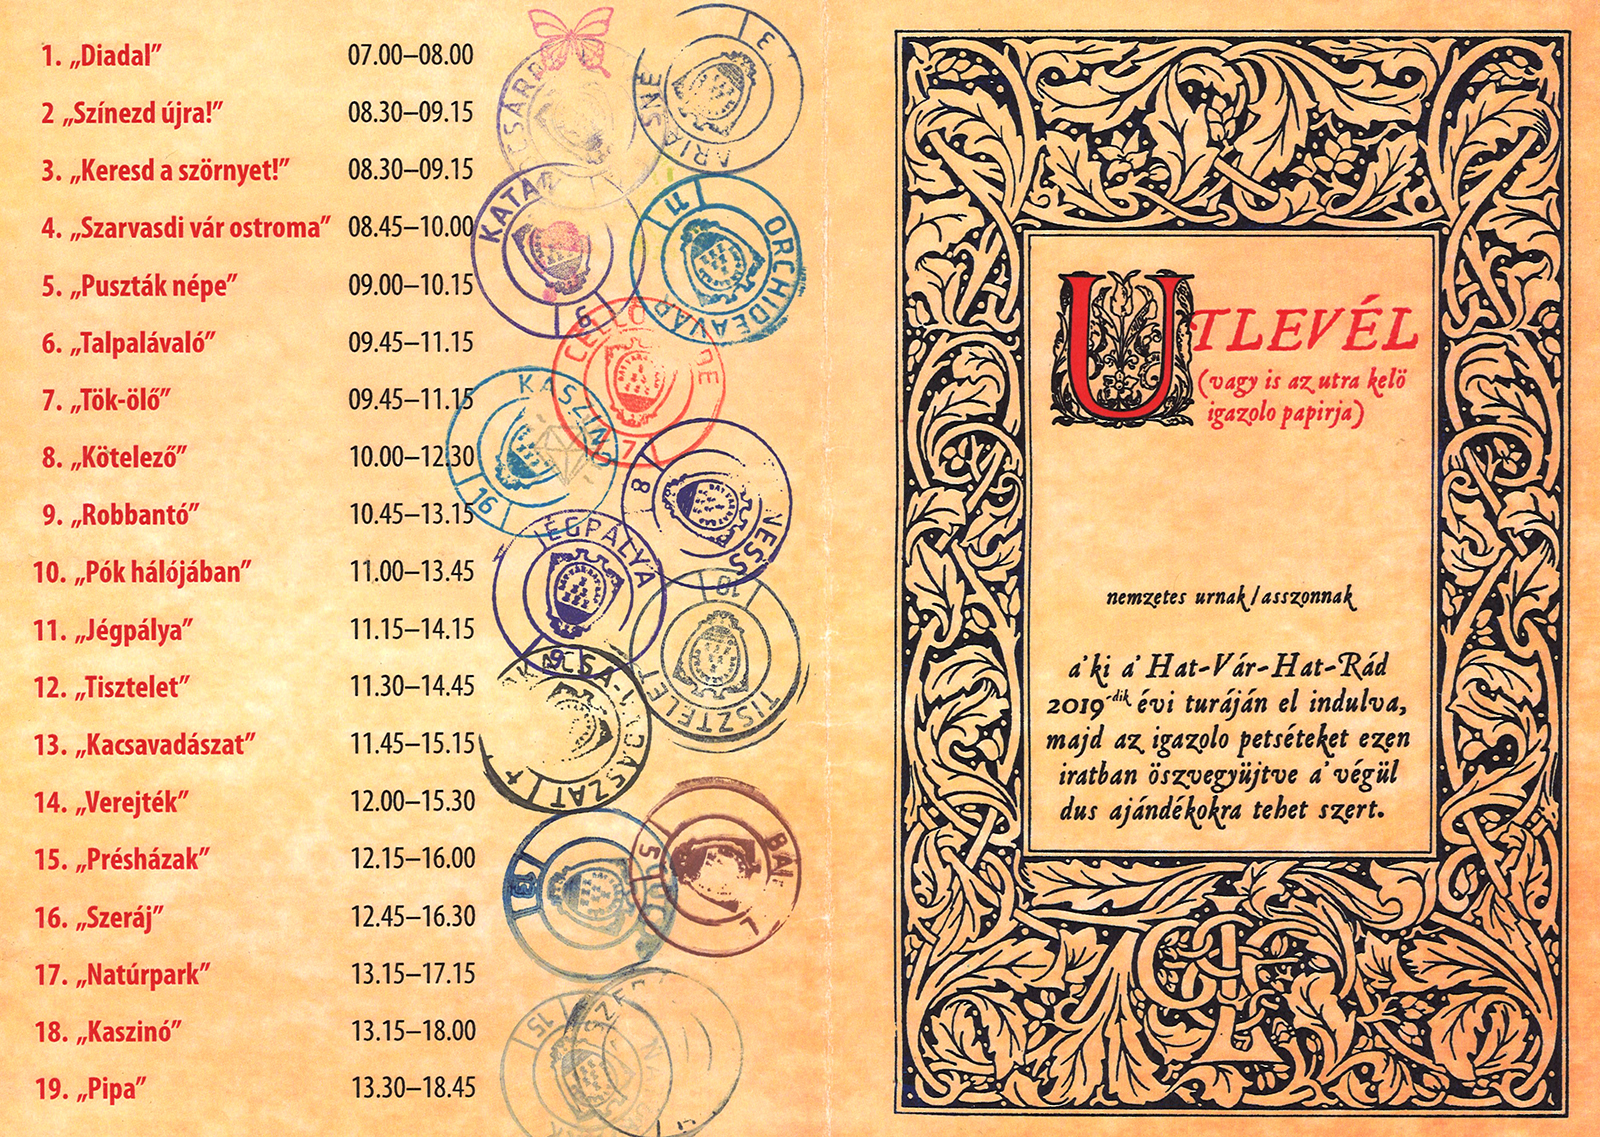 1. „Diadal” 07.00–08.00
2 „Színezd újra!” 08.30–09.15
3. „Keresd a szörnyet!” 08.30–09.15
4. „Szarvasdi vár ostroma” 08.45–10.00
5. „Puszták népe” 09.00–10.15
6. „Talpalávaló” 09.45–11.15
7. „Tök-ölő” 09.45–11.15
8. „Kötelező” 10.00–12.30
9. „Robbantó” 10.45–13.15
10. „Pók hálójában” 11.00–13.45
11. „Jégpálya” 11.15–14.15
12. „Tisztelet” 11.30–14.45
13. „Kacsavadászat” 11.45–15.15
14. „Verejték” 12.00–15.30
15. „Présházak” 12.15–16.00
16. „Szeráj” 12.45–16.30
17. „Natúrpark” 13.15–17.15
18. „Kaszinó” 13.15–18.00
19. „Pipa” 13.30–18.45
3
11 ORCHIDEAVÁR
6
7
KASZINÓ 16
8 NESS
JÉGPÁLYA 9
10 TISZTELET
13
5
15
UTLEVÉL
(vagy is az utra kelö
igazolo papirja)
nemzetes urnak/asszonnak
a' ki a' Hat-Vár-Hat-Rád
2019-dik évi turáján el indulva,
majd az igazolo petséteket ezen
iratban öszvegyüjtve a' végül
dus ajándékokra tehet szert.